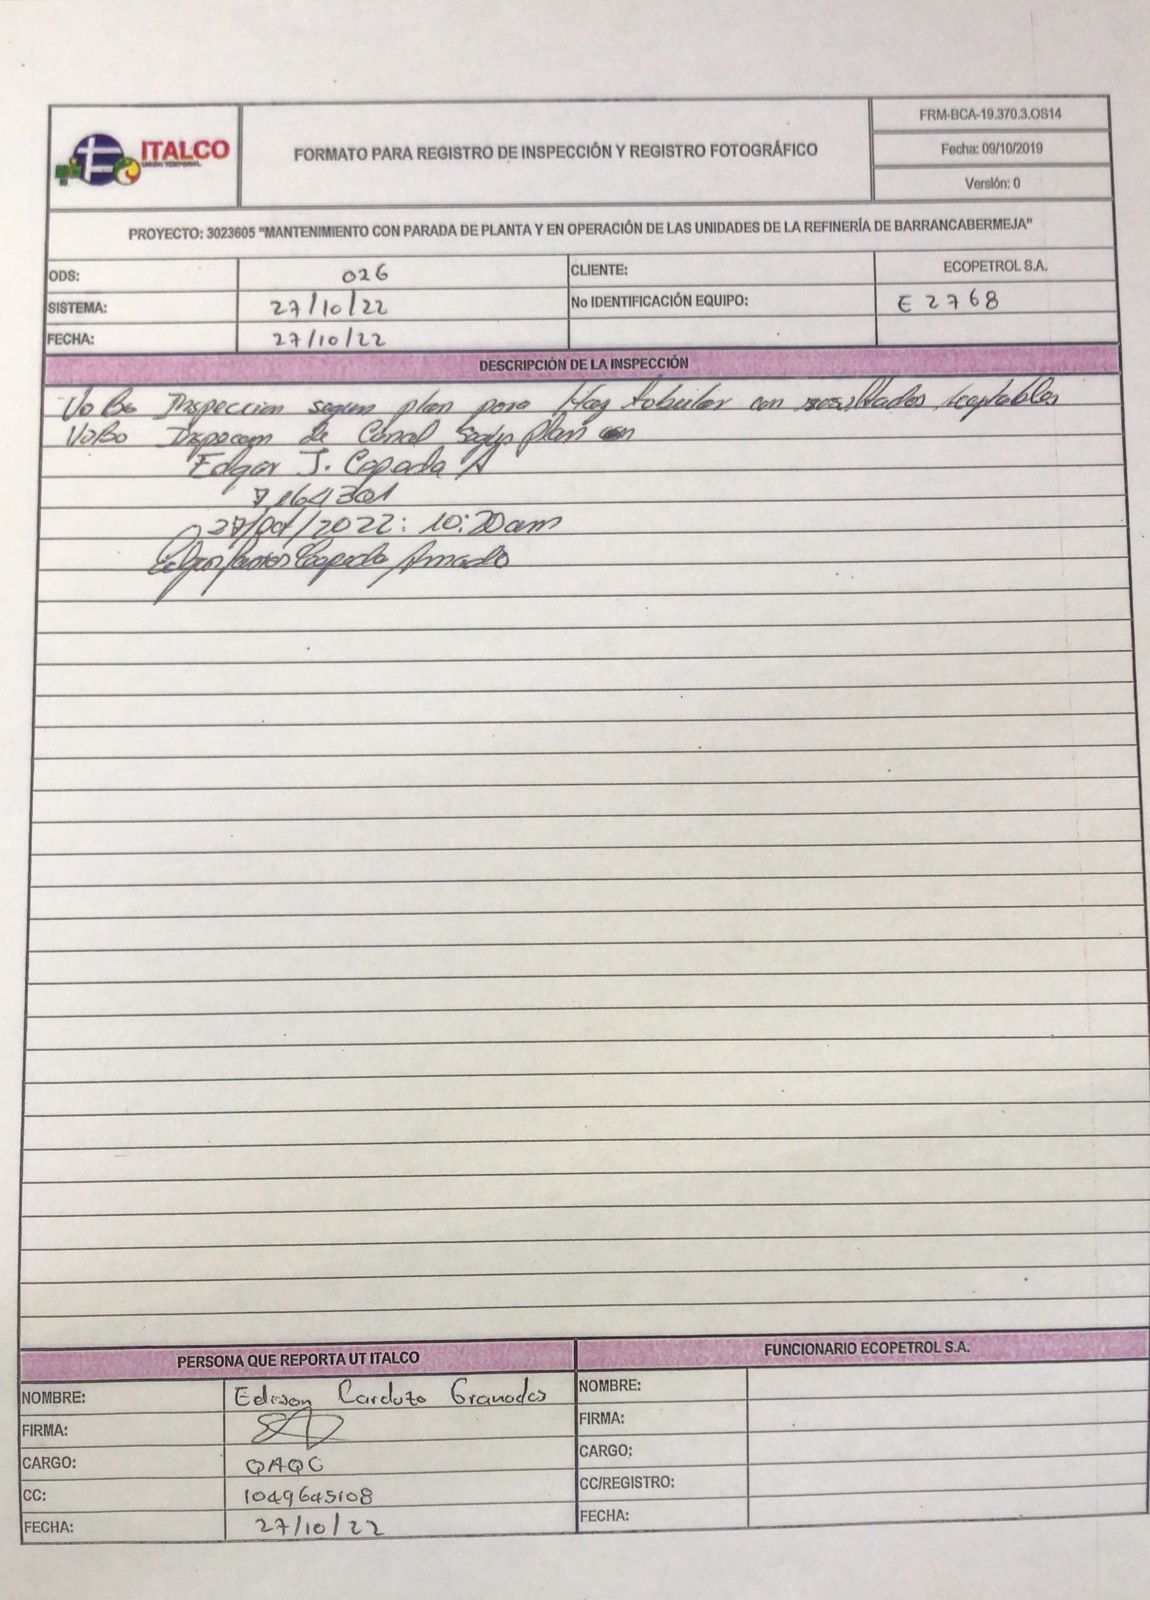 ITALCO
UNIÓN TEMPORAL
FORMATO PARA REGISTRO DE INSPECCIÓN Y REGISTRO FOTOGRÁFICO
FRM-BCA-19.370.3.OS14
Fecha: 09/10/2019
Versión: 0
PROYECTO: 3023605 "MANTENIMIENTO CON PARADA DE PLANTA Y EN OPERACIÓN DE LAS UNIDADES DE LA REFINERÍA DE BARRANCABERMEJA"
ODS: 026 CLIENTE: ECOPETROL S.A.
SISTEMA: 27/10/22 No IDENTIFICACIÓN EQUIPO: E 2768
FECHA: 27/10/22
DESCRIPCIÓN DE LA INSPECCIÓN
VoBo Inspeccion segun plan para Haz tubular con resultados Aceptables
VoBo de Canal Según plan con
Edgar J. Cepeda A
27/oct/2022: 10:20am
Edgar Cepeda Amado
PERSONA QUE REPORTA UT ITALCO
NOMBRE: Edison Cardozo Granados
FIRMA:
CARGO: QAQC
CC: 1049645108
FECHA: 27/10/22
FUNCIONARIO ECOPETROL S.A.
NOMBRE:
FIRMA:
CARGO:
CC/REGISTRO:
FECHA: